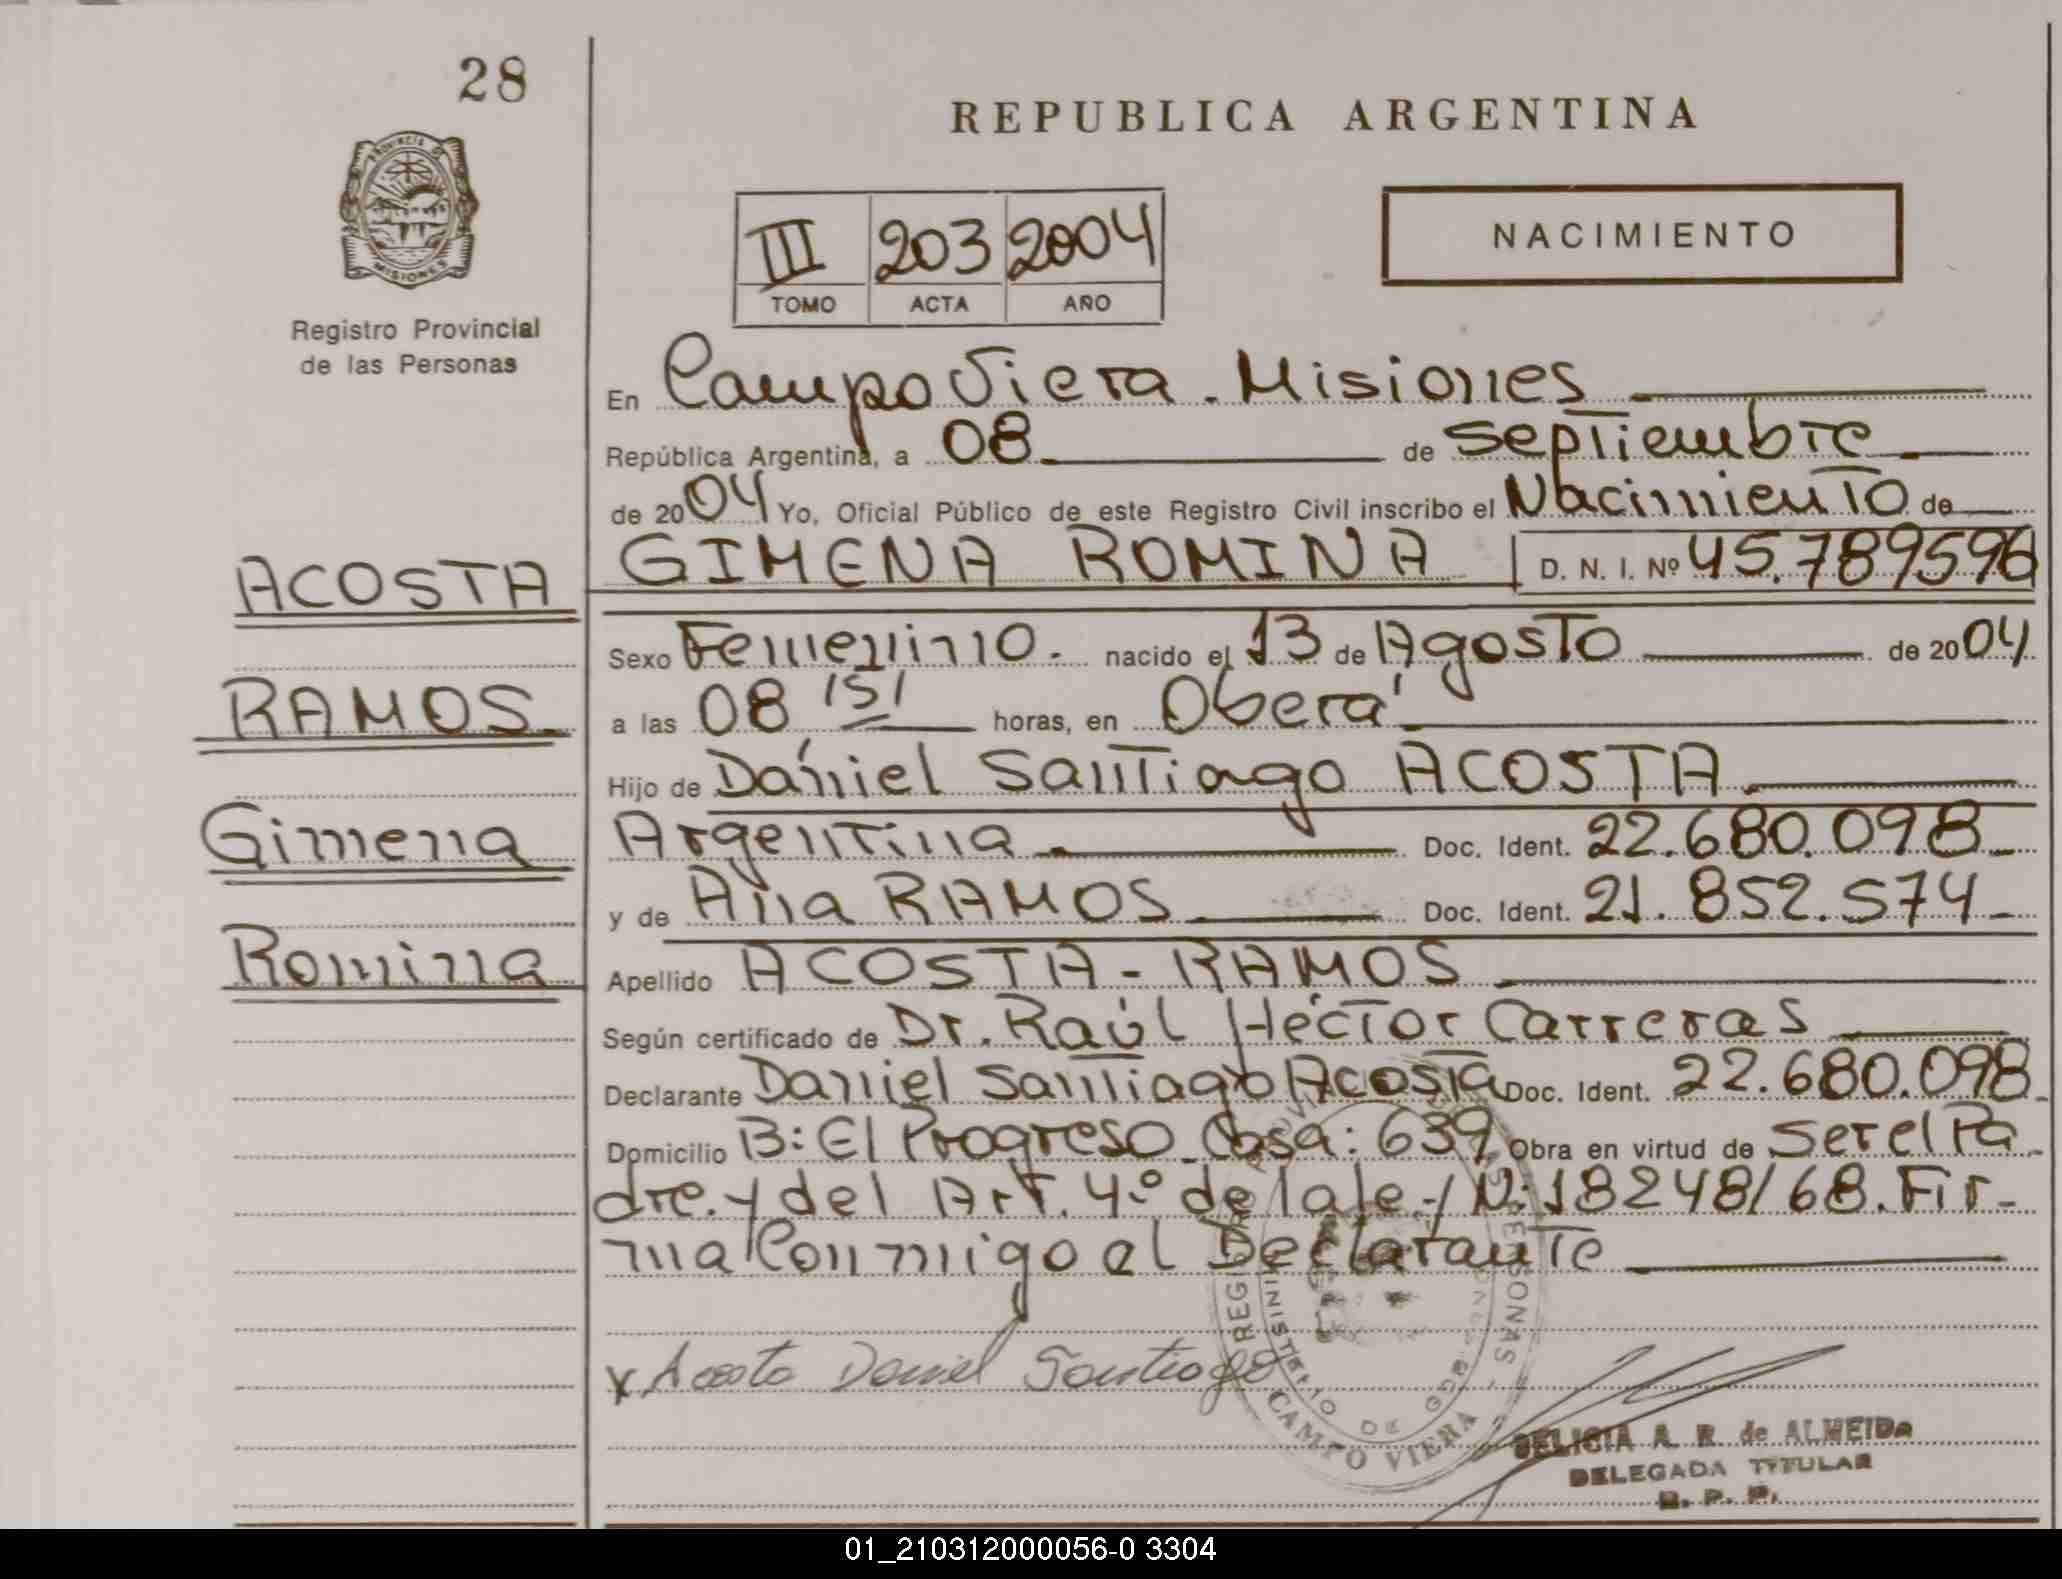 28
REPUBLICA ARGENTINA
PROVINCIA DE
MISIONES
Registro Provincial
de las Personas
III 203 2004
TOMO ACTA AÑO
NACIMIENTO
En Campo Viera. Misiones
República Argentina, a 08 de Septiembre
de 2004 Yo, Oficial Público de este Registro Civil inscribo el Nacimiento de
GIMENA ROMINA D. N. I. Nº 45.789596
ACOSTA
Sexo Femenino. nacido el 13 de Agosto de 2004
RAMOS
a las 08 15' horas, en Oberá
Hijo de Daniel Santiago ACOSTA
Gimena
Argentina Doc. Ident. 22.680.098
y de Ana RAMOS Doc. Ident. 21.852.574
Romina
Apellido ACOSTA - RAMOS
Según certificado de Dr. Raúl Héctor Carreras
Declarante Daniel Santiago Acosta Doc. Ident. 22.680.098
Domicilio B: El Progreso Casa: 639 Obra en virtud de ser el Pa-
dre. y del Art. 4º de la ley N: 18248/68. Fir-
ma Conmigo el Declarante
x Acosta Daniel Santiago
CAMPO VIERA
DELICIA A. R. de ALMEIDA
DELEGADA TITULAR
R. P. P.
01_210312000056-0 3304